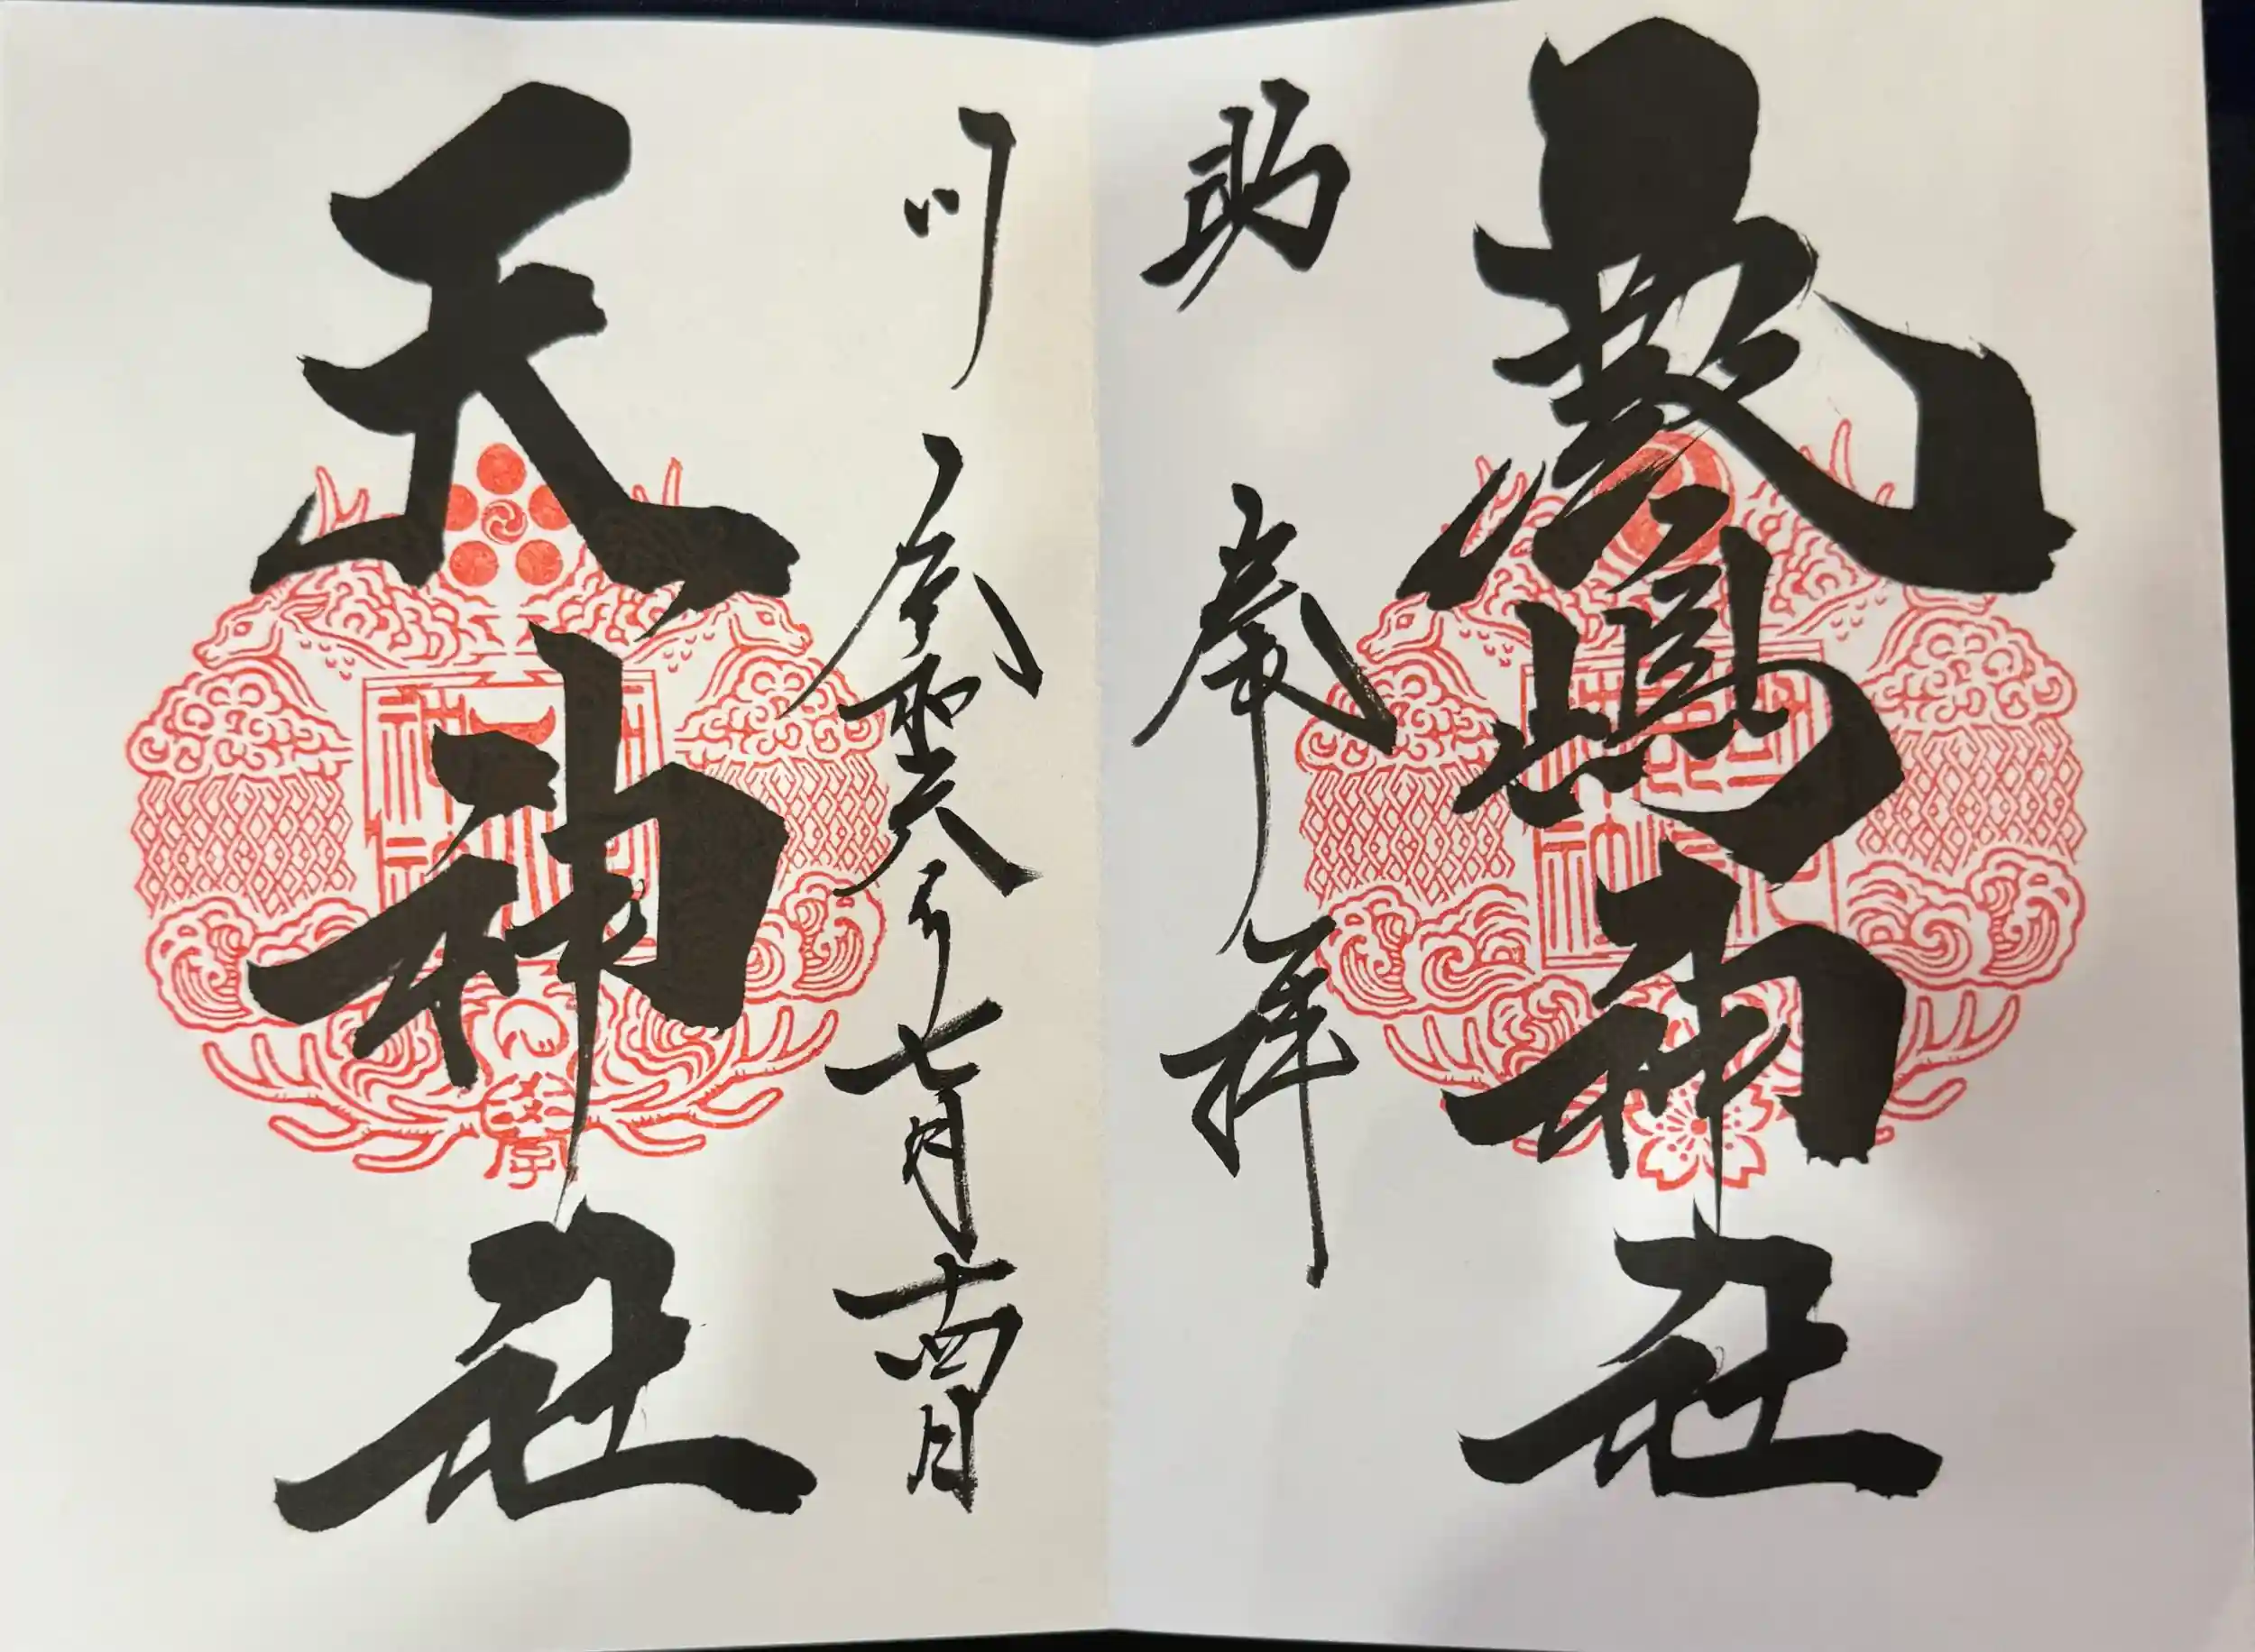 嶋神社
助 奉拝
川 令和六年七月十四日
天神社